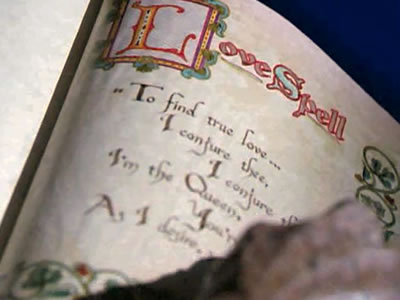 Love Spell
"To find true love...
I conjure thee,
I conjure
I'm the Queen,
As I
desire,